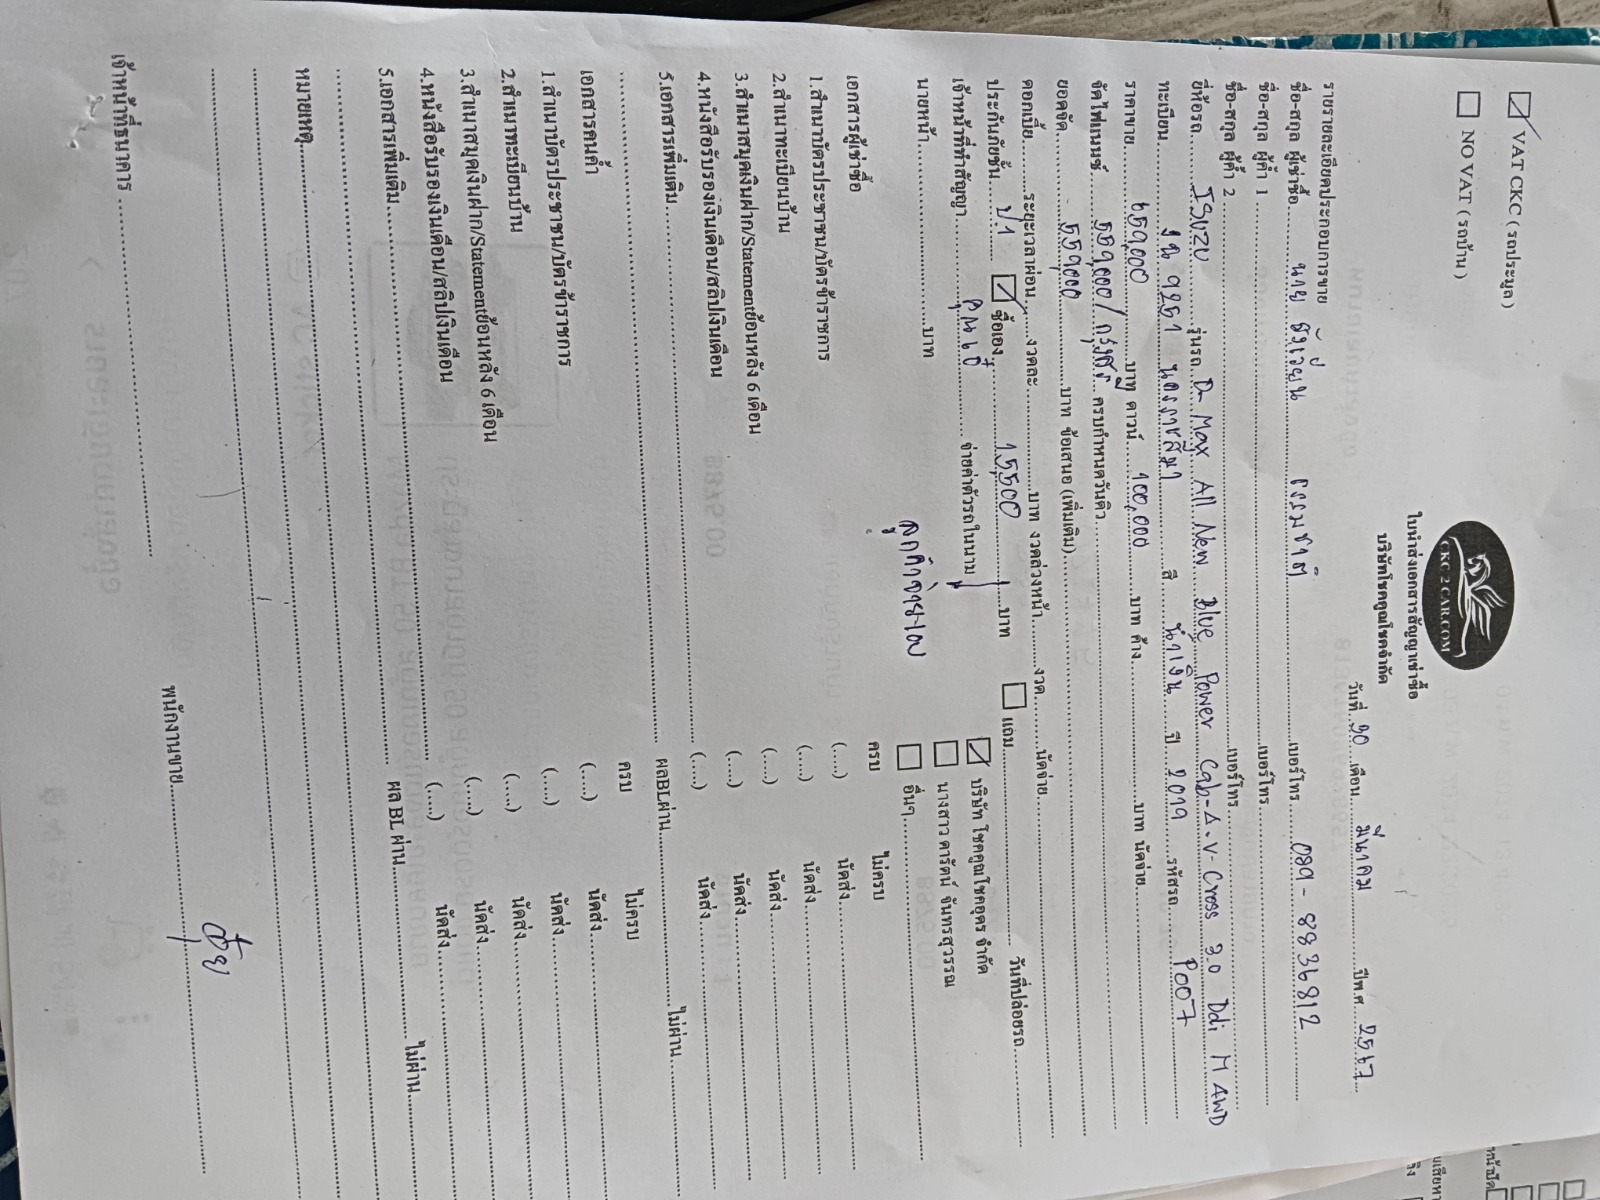 VAT CKC ( รถประมูล )
NO VAT ( รถบ้าน )
CKC 2 CAR.COM
ใบนำส่งเอกสารสัญญาเช่าซื้อ
บริษัทโชคคูณโชคจำกัด
วันที่ 30 เดือน มีนาคม ปีพ.ศ 2567
รายรายละเอียดประกอบการขาย
ชื่อ-สกุล ผู้เช่าซื้อ นาย ธรรมชาติ เบอร์โทร 089-8836812
ชื่อ-สกุล ผู้ค้ำ 1 เบอร์โทร
ชื่อ-สกุล ผู้ค้ำ 2 เบอร์โทร
ยี่ห้อรถ ISUZU รุ่นรถ D-Max All New Blue Power Cab-4 V-Cross 3.0 Ddi M 4WD
ทะเบียน 9251 นครราชสีมา สี น้ำเงิน ปี 2019 รหัสรถ P007
ราคาขาย 659,000 บาท ดาวน์ 100,000 บาท ค้าง บาท นัดจ่าย
จัดไฟแนนซ์ 559,000/กรุงศรี ครบกำหนดวันคิว
ยอดจัด 559,000 บาท ข้อเสนอ (เพิ่มเติม)
ดอกเบี้ย ระยะเวลาผ่อน งวดละ บาท งวดล่วงหน้า งวด นัดจ่าย
ประกันภัยชั้น ป.1 ซื้อเอง 15,500 บาท แถม วันที่ปล่อยรถ
เจ้าหน้าที่ทำสัญญา จ่ายค่าตัวรถในนาม บริษัท โชคคูณโชคอุดร จำกัด
นายหน้า บาท ลูกค้าจ่ายเอง นางสาว ดารัตน์ จันทรสุวรรณ
อื่นๆ
เอกสารผู้เช่าซื้อ ครบ ไม่ครบ
1.สำเนาบัตรประชาชน/บัตรข้าราชการ (....) นัดส่ง
2.สำเนาทะเบียนบ้าน (....) นัดส่ง
3.สำเนาสมุดเงินฝาก/Statementย้อนหลัง 6 เดือน (....) นัดส่ง
4.หนังสือรับรองเงินเดือน/สลิปเงินเดือน (....) นัดส่ง
5.เอกสารเพิ่มเติม (....) นัดส่ง
ผลBLผ่าน ไม่ผ่าน
เอกสารคนค้ำ ครบ ไม่ครบ
1.สำเนาบัตรประชาชน/บัตรข้าราชการ (....) นัดส่ง
2.สำเนาทะเบียนบ้าน (....) นัดส่ง
3.สำเนาสมุดเงินฝาก/Statementย้อนหลัง 6 เดือน (....) นัดส่ง
4.หนังสือรับรองเงินเดือน/สลิปเงินเดือน (....) นัดส่ง
5.เอกสารเพิ่มเติม (....) นัดส่ง
ผล BL ผ่าน ไม่ผ่าน
หมายเหตุ
เจ้าหน้าที่ธนาคาร พนักงานขาย